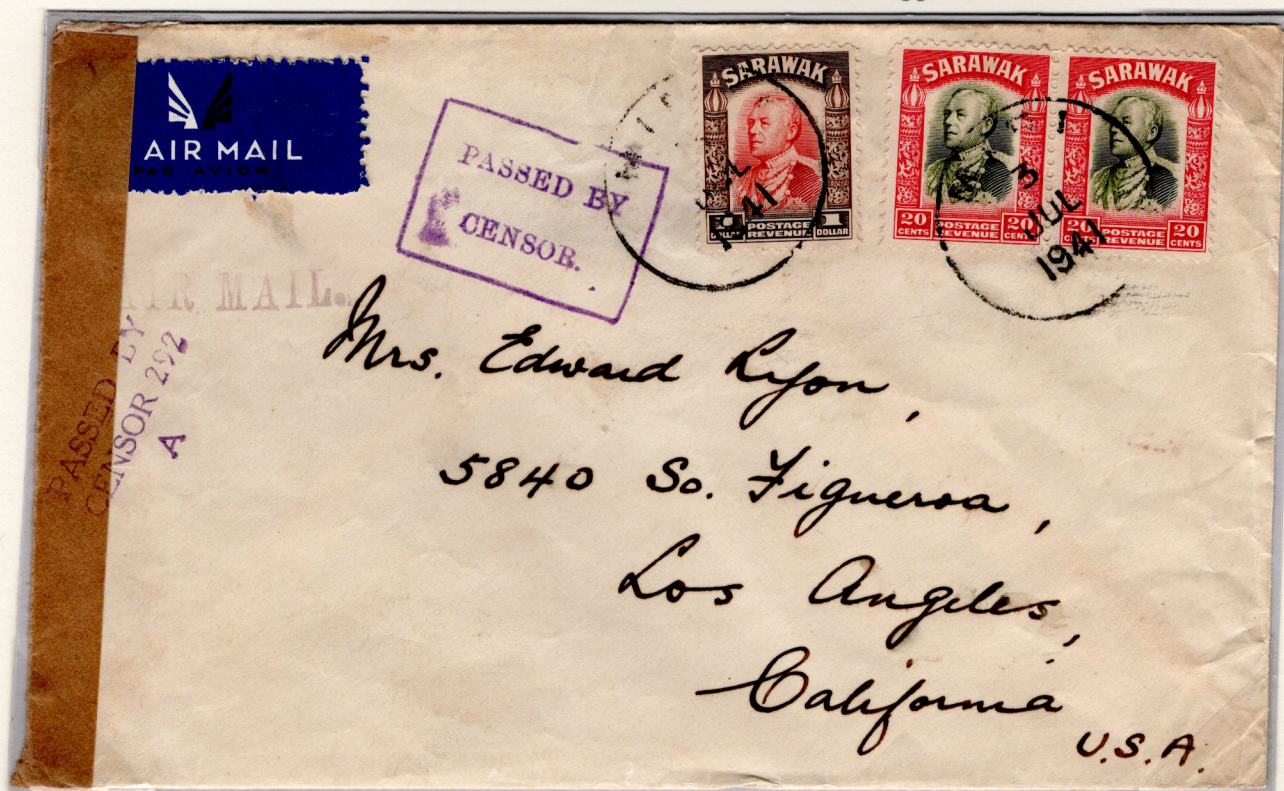 AIR MAIL
PAR AVION
PASSED BY
CENSOR.
SARAWAK
1 DOLLAR
POSTAGE
REVENUE
JUL
1941
SARAWAK
20 CENTS
POSTAGE
REVENUE
20 CENTS
SARAWAK
20
POSTAGE
REVENUE
20 CENTS
3
JUL
1941
AIR MAIL.
PASSED BY
CENSOR 292
A
Mrs. Edward Lyon,
5840 So. Figueroa,
Los Angeles,
California
U.S.A.